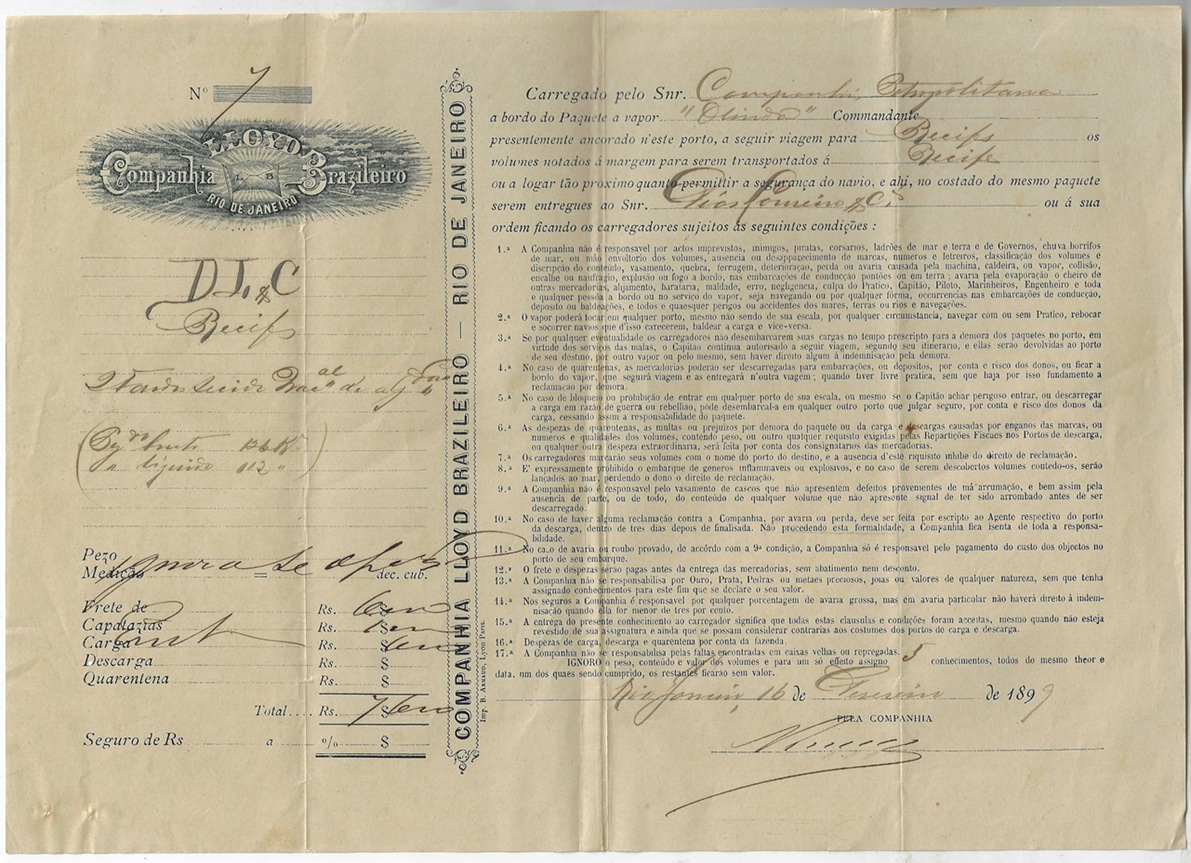 Nº 7
LLOYD
Companhia Brazileiro
RIO DE JANEIRO
D L & C
Recife
2 Fardos tecido Nac.al de alg
Pezo bruto K
" liquido 112 "
Pezo
Medição = dec. cub.
Frete de Rs.
Capatazias Rs. $
Carga Rs. $
Descarga Rs. $
Quarentena Rs. $
Total.... Rs. $
Seguro de Rs a º/o $
COMPANHIA LLOYD BRAZILEIRO — RIO DE JANEIRO
Imp. B. Arnaud, Lyon Paris.
Carregado pelo Snr. Companhia Petropolitana
a bordo do Paquete a vapor "Olinda" Commandante
presentemente ancorado n'este porto, a seguir viagem para Recife os
volumes notados á margem para serem transportados á Recife
ou a logar tão proximo quanto permittir a segurança do navio, e ahi, no costado do mesmo paquete
serem entregues ao Snr. & Cª ou á sua
ordem ficando os carregadores sujeitos ás seguintes condições :
1.ª A Companhia não é responsavel por actos imprevistos, inimigos, piratas, corsarios, ladrões de mar e terra e de Governos, chuva borrifos
de mar, ou máo envoltorio dos volumes, ausencia ou desapparecimento de marcas, numeros e letreiros, classificação dos volumes e
discripção do conteúdo, vasamento, quebra, ferrugem, deterioraçao, perda ou avaria causada pela machina, caldeira, ou vapor, collisão,
encalhe ou naufragio, explosão ou fogo a bordo, nas embarcações de conducção pontões ou em terra ; avaria pela evaporação o cheiro de
outras mercadorias, alijamento, barataria, maldade, erro, negligencia, culpa do Pratico, Capitão, Piloto, Marinheiros, Engenheiro e toda
e qualquer pessoa a bordo ou no serviço do vapor, seja navegando ou por qualquer fórma, occurrencias nas embarcações de conducção,
deposito ou baldeações, e todos e quaesquer perigos ou accidentes dos mares, terras ou rios e navegações.
2.ª O vapor poderá tocar em qualquer porto, mesmo não sendo de sua escala, por qualquer circumstancia, navegar com ou sem Pratico, rebocar
e soccorrer navios que d'isso carecerem, baldear a carga e vice-versa.
3.ª Se por qualquer eventualidade os carregadores não desembarcarem suas cargas no tempo prescripto para a demora dos paquetes no porto, em
virtude dos serviços das malas, o Capitão continua autorisado a seguir viagem, segundo seu itinerario, e ellas serão devolvidas ao porto
de seu destino, por outro vapor ou pelo mesmo, sem haver direito algum á indemnisação pela demora.
4.ª No caso de quarentenas, as mercadorias poderão ser descarregadas para embarcações, ou depositos, por conta e risco dos donos, ou ficar a
bordo do vapor, que segurá viagem e as entregará n'outra viagem ; quando tiver livre pratica, sem que haja por isso fundamento a
reclamacao por demora.
5.ª No caso de bloqueio ou prohibição de entrar em qualquer porto de sua escala, ou mesmo se o Capitão achar perigoso entrar, ou descarregar
a carga em razão de guerra ou rebellião, póde desembarcal-a em qualquer outro porto que julgar seguro, por conta e risco dos donos da
carga, cessando assim a responsabilidade do paquete.
6.ª As despezas de quarentenas, as multas ou prejuizos por demora do paquete ou da carga e descargas causadas por enganos das marcas, ou
numeros e qualidades dos volumes, contendo peso, ou outro qualquer requisito exigidas pelas Repartições Fiscaes nos Portos de descarga,
ou qualquer outra despeza extraordinaria, será feita por conta dos consignatarios das mercadorias.
7.ª Os carregadores marcarão seus volumes com o nome do porto do destino, e a ausencia d'este riquisito inhibe do direito de reclamação.
8.ª E' expressamente prohibido o embarque de generos inflammaveis ou explosivos, e no caso de serem descobertos volumes contedo-os, serão
lançados ao mar, perdendo o dono o direito de reclamação.
9.ª A Companhia não é responsavel pelo vasamento de cascos que não apresentem defeitos provementes de má arrumação, e bem assim pela
ausencia de parte, ou de todo, do conteúdo de qualquer volume que não apresente signal de ter sido arrombado antes de ser
descarregado.
10.ª No caso de haver alguma reclamação contra a Companhia, por avaria ou perda, deve ser feita por escripto ao Agente respectivo do porto
da descarga, dentro de tres dias depois de finalisada. Não procedendo esta formalidade, a Companhia fica isenta de toda a responsa-
bilidade.
11.ª No caso de avaria ou roubo provado, de accôrdo com a 9ª condição, a Companhia só é responsavel pelo pagamento do custo dos objectos no
porto de seu embarque.
12.ª O frete e despezas serão pagas antes da entrega das mercadorias, sem abatimento nem desconto.
13.ª A Companhia não se responsabilisa por Ouro, Prata, Pedras ou metaes preciosos, joias ou valores de qualquer natureza, sem que tenha
assignado conhecimentos para este fim que se declare o seu valor.
14.ª Nos seguros a Companhia é responsavel por qualquer porcentagem de avaria grossa, mas em avaria particular não haverá direito á indem-
nisação quando ella for menor de tres por conto.
15.ª A entrega do presente conhecimento ao carregador significa que todas estas clausulas e condições foram acceitas, mesmo quando não esteja
revestido de sua assignatura e ainda que se possam considerar contrarias aos costumes dos portos de carga e descarga.
16.ª Despezas de carga, descarga e quarentena por conta da fazenda.
17.ª A Companhia não se responsabilisa pelas faltas encontradas em caixas velhas ou repregadas.
IGNORO o peso, conteúdo e valor dos volumes e para um só effeito assigno 5 conhecimentos, todos do mesmo theor e
data. um dos quaes sendo cumprido, os restantes ficarão sem valor.
Rio Janeiro, 16 de Fevereiro de 1899
PELA COMPANHIA